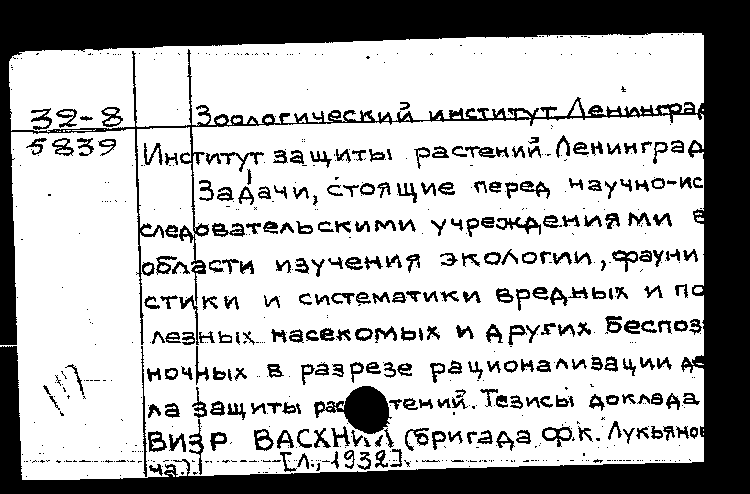 32-8
Зоологический институт Ленинград
5839
Институт защиты растений. Ленинград
Задачи, стоящие перед научно-ис
следовательскими учреждениями в
области изучения экологии, фауни
стики и систематики вредных и по
лезных насекомых и других беспоз
ночных в разрезе рационализации де
ла защиты рас тений. Тезисы доклада
ВИЗР ВАСХНИЛ (бригада Ф.К. Лукьянов
ча). [Л., 1932].